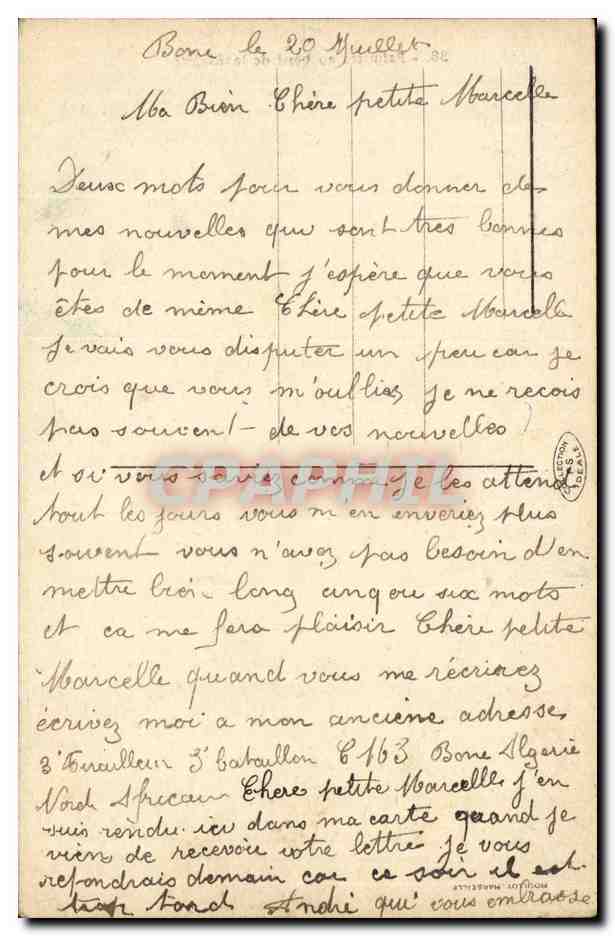 Bone le 20 Juillet
Ma Bien Chère petite Marcelle
Deux mots pour vous donner de
mes nouvelles qui sont très bonnes
pour le moment j'espère que vous
êtes de même Chère petite Marcelle
Je vais vous disputer un peu car je
crois que vous m'oubliez je ne reçois
pas souvent de vos nouvelles
et si vous saviez comme je les attend
tout les jours vous m en enveriez plus
souvent vous n'avez pas besoin d'en
mettre bien long cinq ou six mots
et ca me fera plaisir Chère petite
Marcelle quand vous me récrirez
écrivez moi a mon anciene adresse
3e Tirailleur 3e bataillon C 163 Bone Algerie
Nord Africain Chere petite Marcelle j'en
suis rendu ici dans ma carte quand je
vien de recevoir votre lettre je vous
refondrais demain car ce soir il est
trop tard André qui vous embrasse
COLLECTION
IDEALE
MARSEILLE
CPAPHIL